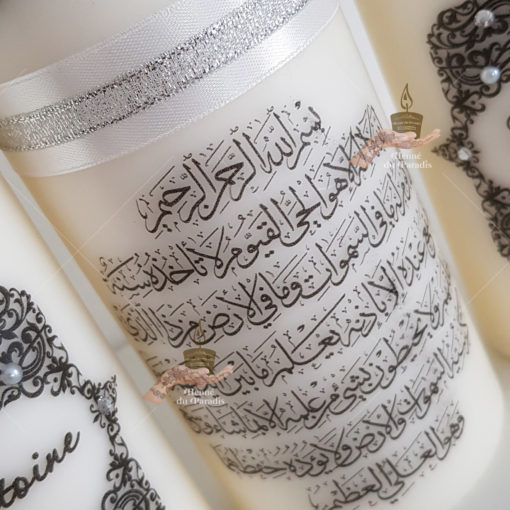 بسم الله الرحمن الرحيم
لا هو الحي القيوم لا تأخذه سنة
ما في السموات وما في الارض من ذا الذي
عنده إلا بإذنه يعلم ما بين
ولا يحيطون بشيء من علمه إلا بما شاء
السموات والأرض ولا يؤده حفظهما
وهو العلي العظيم
Henné
du Paradis
Henné
du Paradis
toine